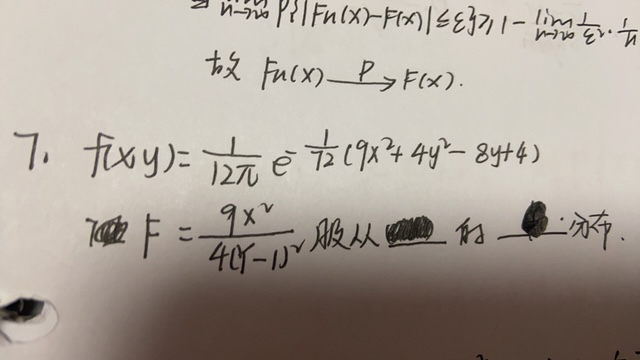 lim n→∞ P{|Fn(x)-F(x)|≤ε}≥1-lim n→∞ 1/ε²·1/n
故 Fn(x) —P→ F(x).
7. f(x,y)=1/12π e^-1/72(9x²+4y²-8y+4)
F=9x²/4(Y-1)² 服从 ____ 的 ____ 分布.